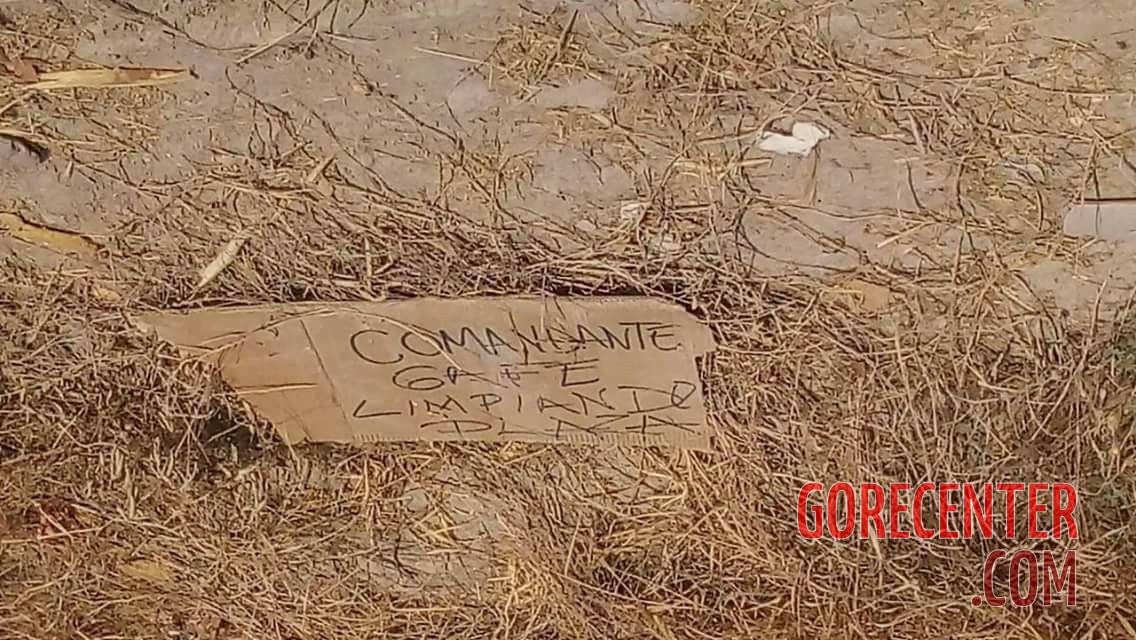 COMANDANTE
GAFE
LIMPIANDO
PLAZA
GORECENTER
.COM